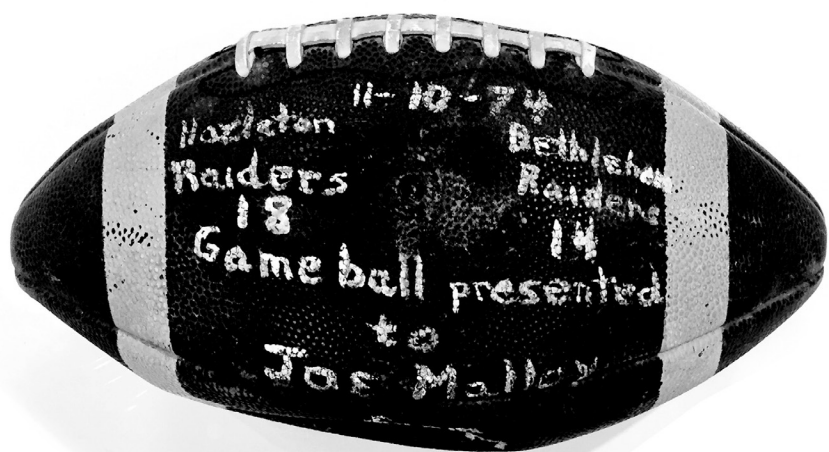 11-10-74
Hazleton
Raiders
18
Bethlehem
Raiders
14
Game ball presented
to
Joe Malloy